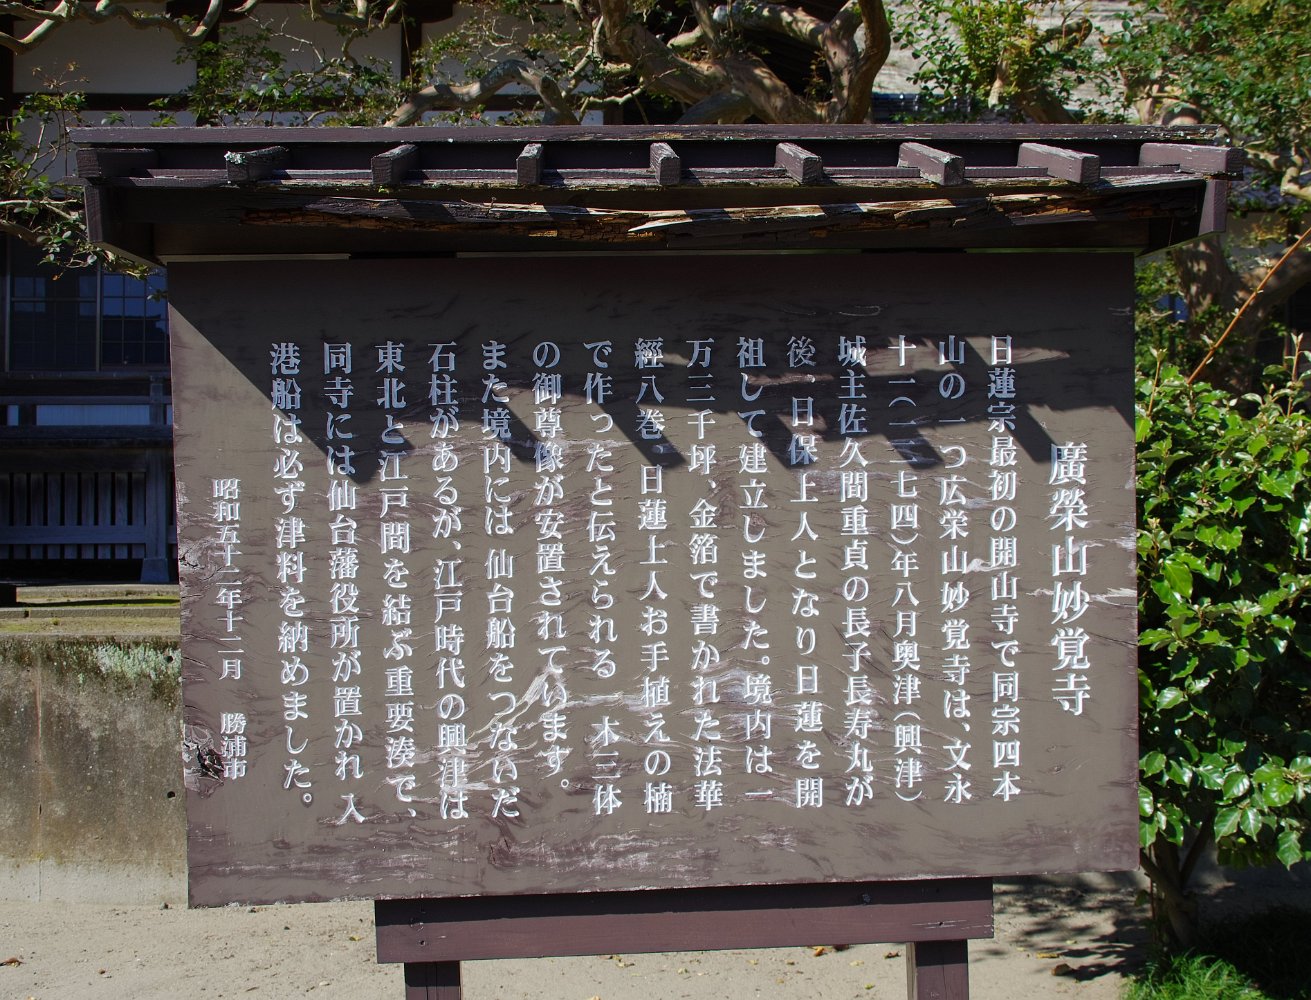 廣榮山妙覚寺
日蓮宗最初の開山寺で同宗四本
山の一つ広栄山妙覚寺は、文永
十一(一二七四)年八月奥津(興津)
城主佐久間重貞の長子長寿丸が
後、日保上人となり日蓮を開
祖して建立しました。境内は一
万三千坪、金箔で書かれた法華
經八巻。日蓮上人お手植えの楠
で作ったと伝えられる 木三体
の御尊像が安置されています。
また境内には 仙台船をつないだ
石柱があるが、江戸時代の興津は
東北と江戸間を結ぶ重要湊で、
同寺には仙台藩役所が置かれ 入
港船は必ず津料を納めました。
昭和五十二年十二月 勝浦市